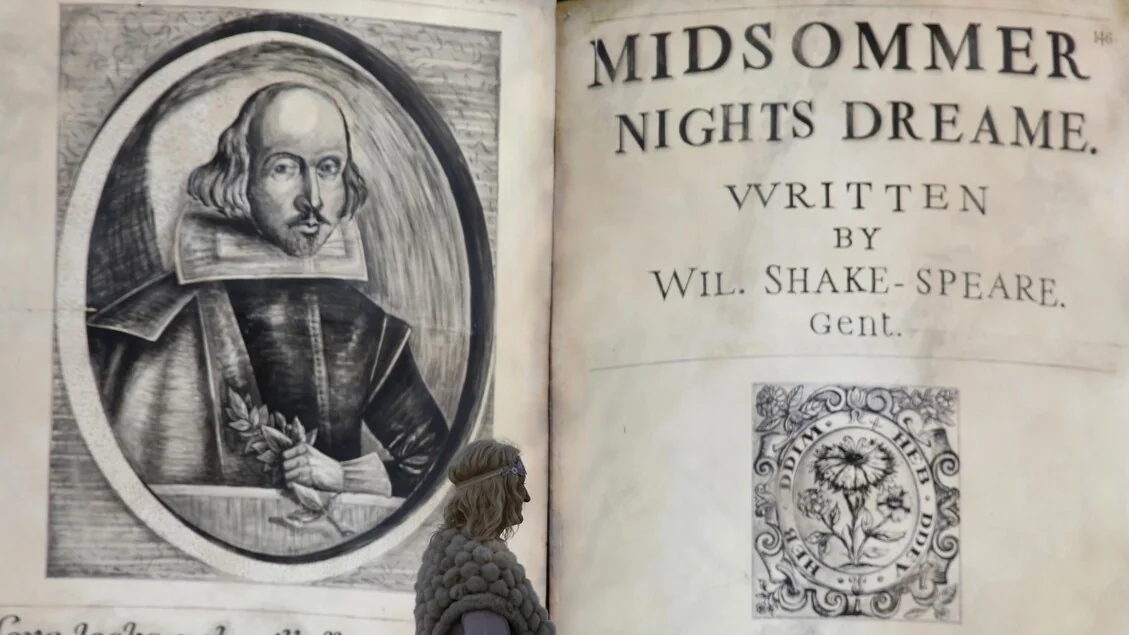 MIDSOMMER 146
NIGHTS DREAME.
WRITTEN
BY
WIL. SHAKE-SPEARE.
Gent.
HEB DDIM · HEB DDEV ·